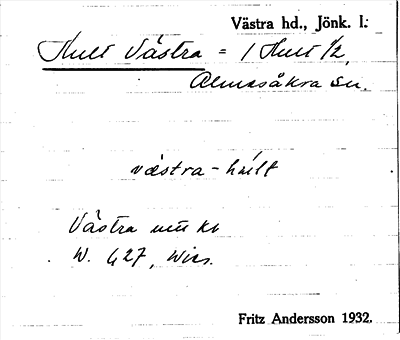 Västra hd., Jönk. l.
Hult Västra = 1 Hult 1/2,
Almesåkra sn.
västra-hult
Västra
W. 627,
Fritz Andersson 1932.